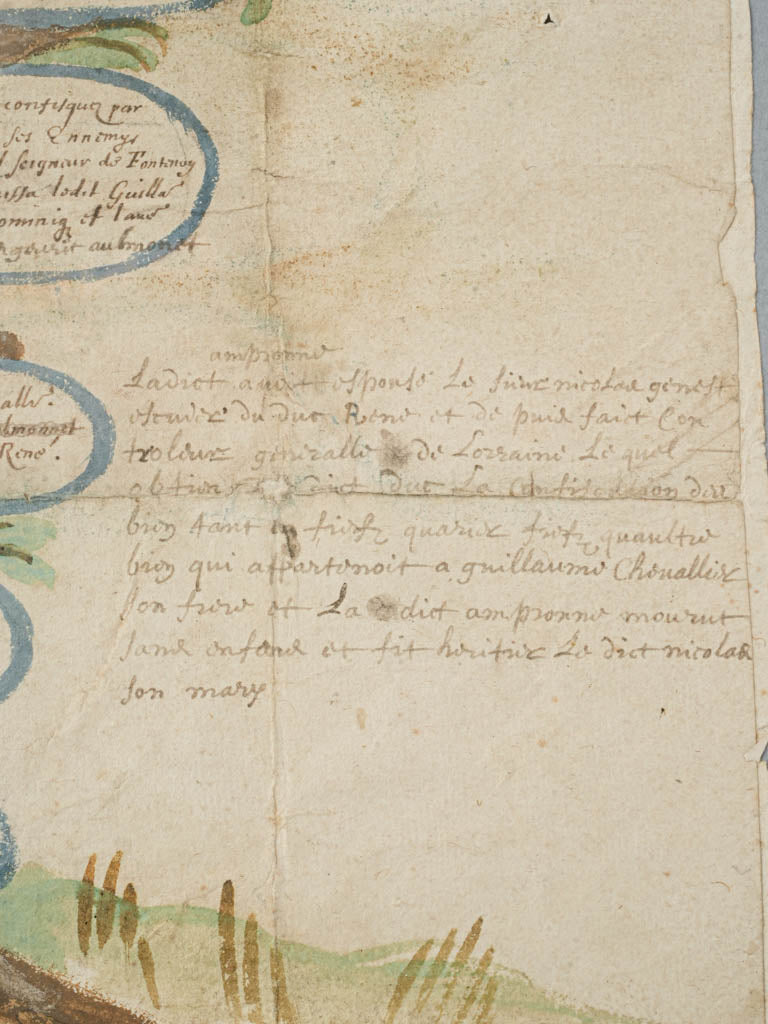 confisquez par
ses Ennemys
seigneur de Fontenoy
ledit Guille
et
aubmonet
alle.
René.
ampronne
Ladict avoit espousé Le sieur nicolas genest
escuier du duc René et de puis faict Con
troleur generalle de Lorraine Le quel
obtien dict duc La Confiscation des
bien tant en fiefz quarier fiefz quaultre
bien qui appartenoit a guillaume Chevallier
son frere et La dict ampronne mourut
sans enfens et fit heritier Le dict nicolas
son mary